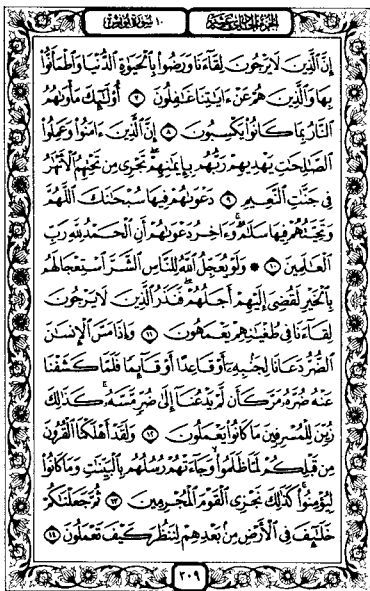 الجزء الحادي عشر ١٠ سورة يونس
إِنَّ ٱلَّذِينَ لَا يَرْجُونَ لِقَآءَنَا وَرَضُوا۟ بِٱلْحَيَوٰةِ ٱلدُّنْيَا وَٱطْمَأَنُّوا۟
بِهَا وَٱلَّذِينَ هُمْ عَنْ ءَايَـٰتِنَا غَـٰفِلُونَ ٧ أُو۟لَـٰٓئِكَ مَأْوَىٰهُمُ
ٱلنَّارُ بِمَا كَانُوا۟ يَكْسِبُونَ ٨ إِنَّ ٱلَّذِينَ ءَامَنُوا۟ وَعَمِلُوا۟
ٱلصَّـٰلِحَـٰتِ يَهْدِيهِمْ رَبُّهُم بِإِيمَـٰنِهِمْ تَجْرِى مِن تَحْتِهِمُ ٱلْأَنْهَـٰرُ
فِى جَنَّـٰتِ ٱلنَّعِيمِ ٩ دَعْوَىٰهُمْ فِيهَا سُبْحَـٰنَكَ ٱللَّهُمَّ
وَتَحِيَّتُهُمْ فِيهَا سَلَـٰمٌ وَءَاخِرُ دَعْوَىٰهُمْ أَنِ ٱلْحَمْدُ لِلَّهِ رَبِّ
ٱلْعَـٰلَمِينَ ١٠ وَلَوْ يُعَجِّلُ ٱللَّهُ لِلنَّاسِ ٱلشَّرَّ ٱسْتِعْجَالَهُم
بِٱلْخَيْرِ لَقُضِىَ إِلَيْهِمْ أَجَلُهُمْ فَنَذَرُ ٱلَّذِينَ لَا يَرْجُونَ
لِقَآءَنَا فِى طُغْيَـٰنِهِمْ يَعْمَهُونَ ١١ وَإِذَا مَسَّ ٱلْإِنسَـٰنَ
ٱلضُّرُّ دَعَانَا لِجَنۢبِهِۦٓ أَوْ قَاعِدًا أَوْ قَآئِمًا فَلَمَّا كَشَفْنَا
عَنْهُ ضُرَّهُۥ مَرَّ كَأَن لَّمْ يَدْعُنَآ إِلَىٰ ضُرٍّ مَّسَّهُۥ كَذَٰلِكَ
زُيِّنَ لِلْمُسْرِفِينَ مَا كَانُوا۟ يَعْمَلُونَ ١٢ وَلَقَدْ أَهْلَكْنَا ٱلْقُرُونَ
مِن قَبْلِكُمْ لَمَّا ظَلَمُوا۟ وَجَآءَتْهُمْ رُسُلُهُم بِٱلْبَيِّنَـٰتِ وَمَا كَانُوا۟
لِيُؤْمِنُوا۟ كَذَٰلِكَ نَجْزِى ٱلْقَوْمَ ٱلْمُجْرِمِينَ ١٣ ثُمَّ جَعَلْنَـٰكُمْ
خَلَـٰٓئِفَ فِى ٱلْأَرْضِ مِنۢ بَعْدِهِمْ لِنَنظُرَ كَيْفَ تَعْمَلُونَ ١٤
٢٠٩